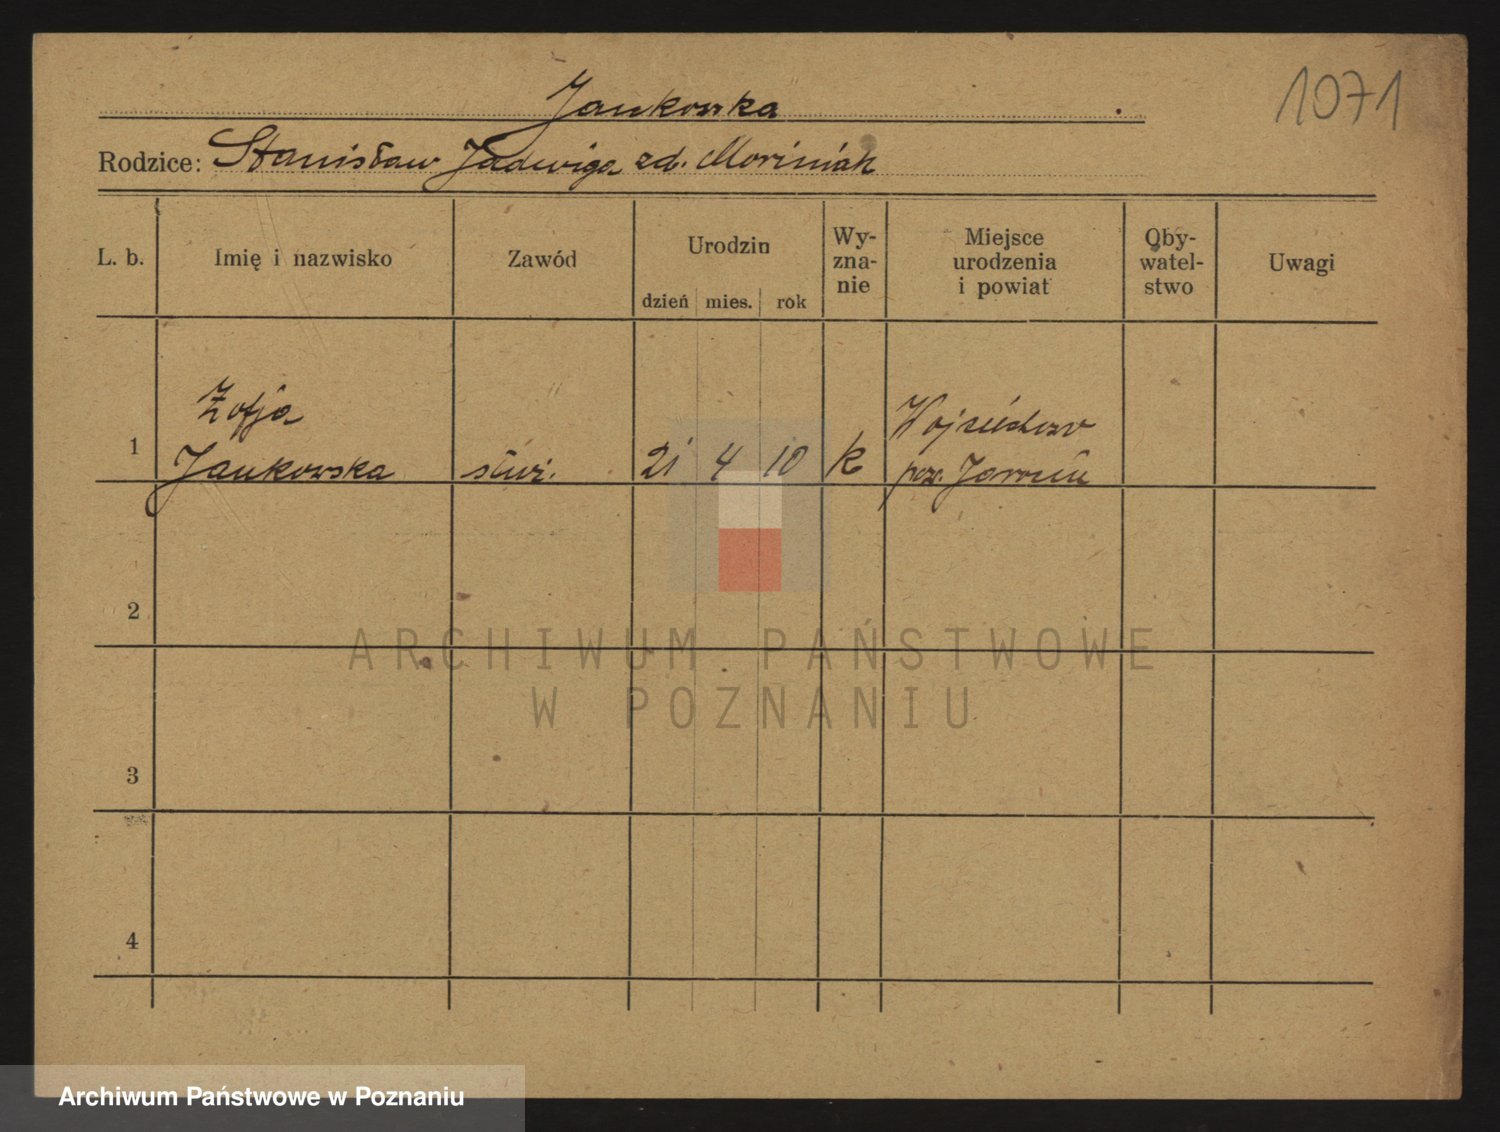 1071
Jankowska
Rodzice: Stanisław Jadwiga zd. Moriniak
L. b. Imię i nazwisko Zawód Urodzin Wy- Miejsce Oby- Uwagi
zna- urodzenia watel-
dzień mies. rok nie i powiat stwo
Zofja
1 Jankowska służ. 21 4 10 k Wojciechowo
pow. Jarocin
2
ARCHIWUM PAŃSTWOWE
W POZNANIU
3
4
Archiwum Państwowe w Poznaniu